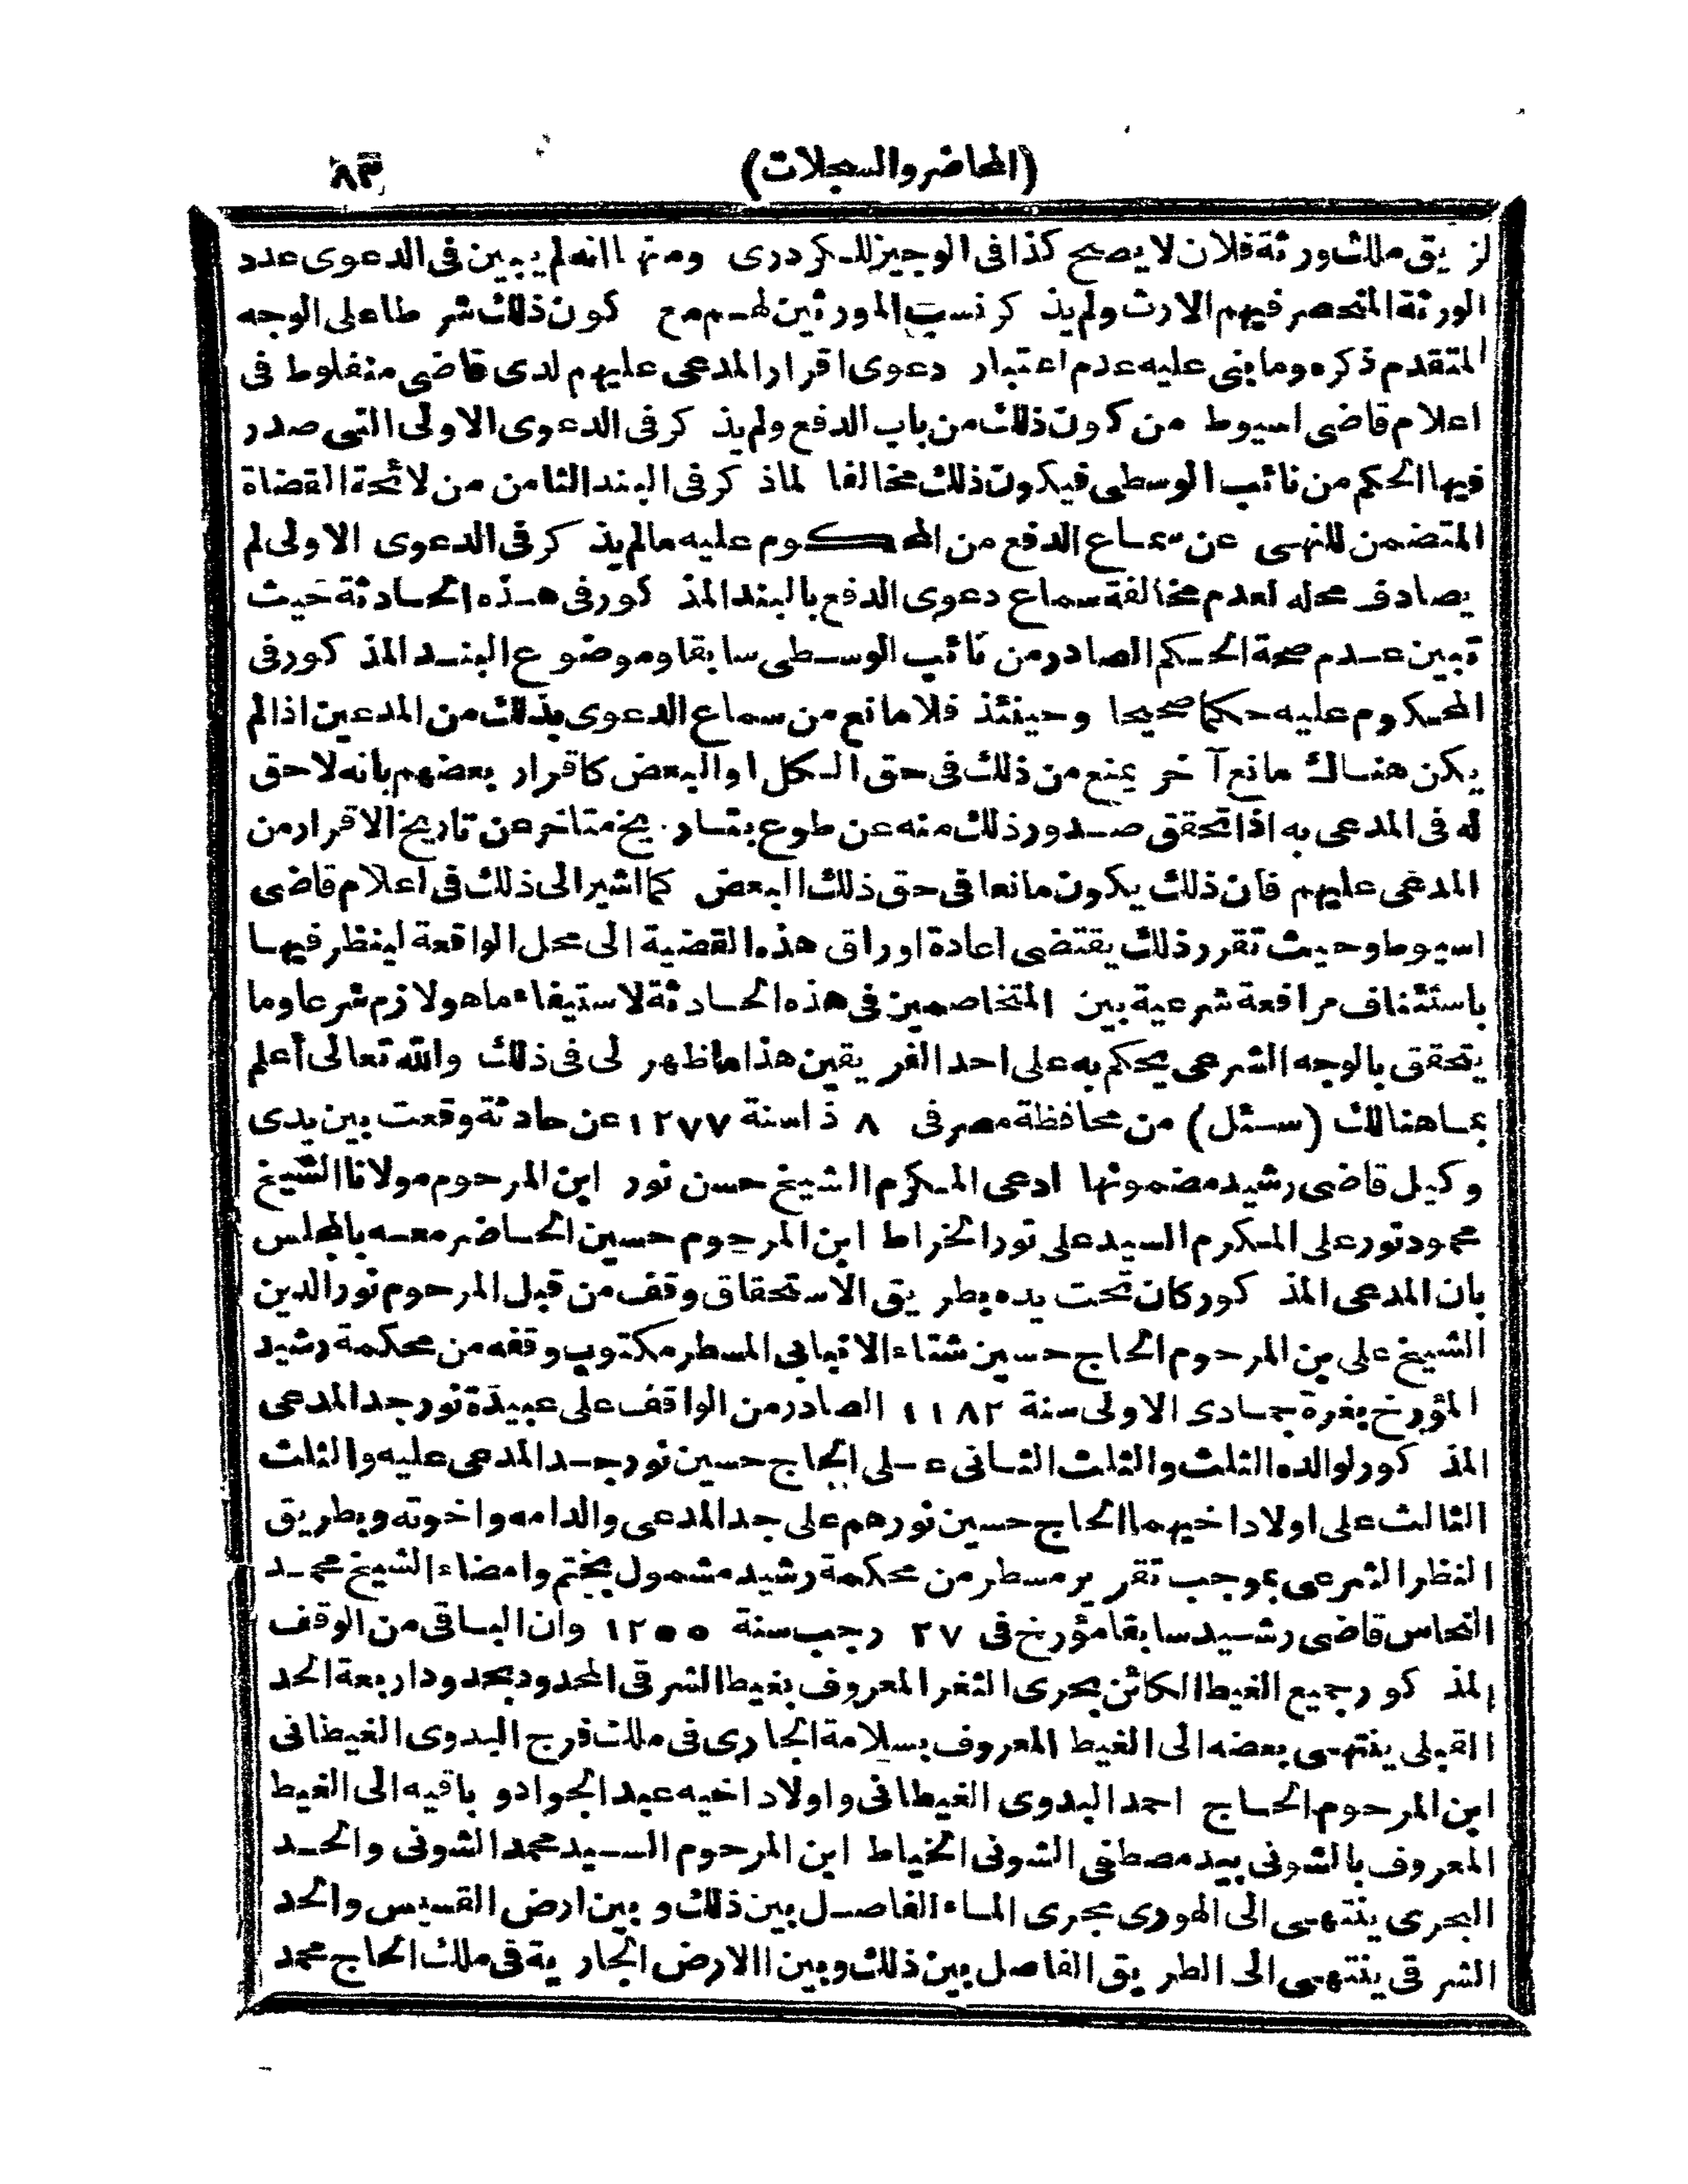 (المحاضر والسجلات) ٨٣
لزيق ملك ورثة فلان لا يصح كذا فى الوجيز للكردرى ومنها انه لم يبين فى الدعوى عدد
الورثة المنحصر فيهم الارث ولم يذكر نسب المورثين لهم مع كون ذلك شرطا على الوجه
المتقدم ذكره وما بنى عليه عدم اعتبار دعوى اقرار المدعى عليهم لدى قاضى منفلوط فى
اعلام قاضى اسيوط من كون ذلك من باب الدفع ولم يذكر فى الدعوى الاولى التى صدر
فيها الحكم من نائب الوسطى فيكون ذلك مخالفا لما ذكر فى البند الثامن من لائحة القضاة
المتضمن للنهى عن سماع الدفع من المحكوم عليه ما لم يذكر فى الدعوى الاولى لم
يصادف محله لعدم مخالفة سماع دعوى الدفع بالبند المذكور فى هذه الحادثة حيث
تبين عدم صحة الحكم الصادر من نائب الوسطى سابقا وموضوع البند المذكور فى
المحكوم عليه حكما صحيحا وحينئذ فلا مانع من سماع الدعوى بذلك من المدعين اذا لم
يكن هناك مانع آخر يمنع من ذلك فى حق الكل او البعض كاقرار بعضهم بانه لا حق
له فى المدعى به اذا تحقق صدور ذلك منه عن طوع بتاريخ متاخر عن تاريخ الاقرار من
المدعى عليهم فان ذلك يكون مانعا فى حق ذلك البعض كما اشير الى ذلك فى اعلام قاضى
اسيوط وحيث تقرر ذلك يقتضى اعادة اوراق هذه القضية الى محل الواقعة لينظر فيها
باستئناف مرافعة شرعية بين المتخاصمين فى هذه الحادثة لاستيفاء ما هو لازم شرعا وما
يتحقق بالوجه الشرعى يحكم به على احد الفريقين هذا ما ظهر لى فى ذلك والله تعالى أعلم
بما هنالك (سئل) من محافظة مصر فى ٨ ذ ا سنة ١٢٧٧ عن حادثة وقعت بين يدى
وكيل قاضى رشيد مضمونها ادعى المكرم الشيخ حسن نور ابن المرحوم مولانا الشيخ
محمود نور على المكرم السيد على نور الخراط ابن المرحوم حسين الحاضر معه بالمجلس
بان المدعى المذكور كان تحت يده بطريق الاستحقاق وقف من قبل المرحوم نور الدين
الشيخ على بن المرحوم الحاج حسين شتاء الانبابى المسطر مكتوب وقفه من محكمة رشيد
المؤرخ بغرة جمادى الاولى سنة ١١٨٢ الصادر من الواقف على عبيدة نور جد المدعى
المذكور لوالده الثلث والثلث الثانى على الحاج حسين نور جد المدعى عليه والثلث
الثالث على اولاد اخيهما الحاج حسين نور هم على جد المدعى والد امه واخوته وبطريق
النظر الشرعى بموجب تقرير مسطر من محكمة رشيد مشمول بختم وامضاء الشيخ محمد
النحاس قاضى رشيد سابقا مؤرخ فى ٢٧ رجب سنة ١٢٥٥ وان الباقى من الوقف
المذكور جميع الغيط الكائن بحرى الثغر المعروف بغيط الشرقى المحدود بحدود اربعة الحد
القبلى ينتهى بعضه الى الغيط المعروف بسلامة الجارى فى ملك فرج البدوى الغيطانى
ابن المرحوم الحاج احمد البدوى الغيطانى واولاد اخيه عبد الجواد و باقيه الى الغيط
المعروف بالشونى بيد مصطفى الشونى الخياط ابن المرحوم السيد محمد الشونى والحد
البحرى ينتهى الى الهودى مجرى الماء الفاصل بين ذلك وبين ارض القسيس والحد
الشرقى ينتهى الى الطريق الفاصل بين ذلك وبين الارض الجارية فى ملك الحاج محمد